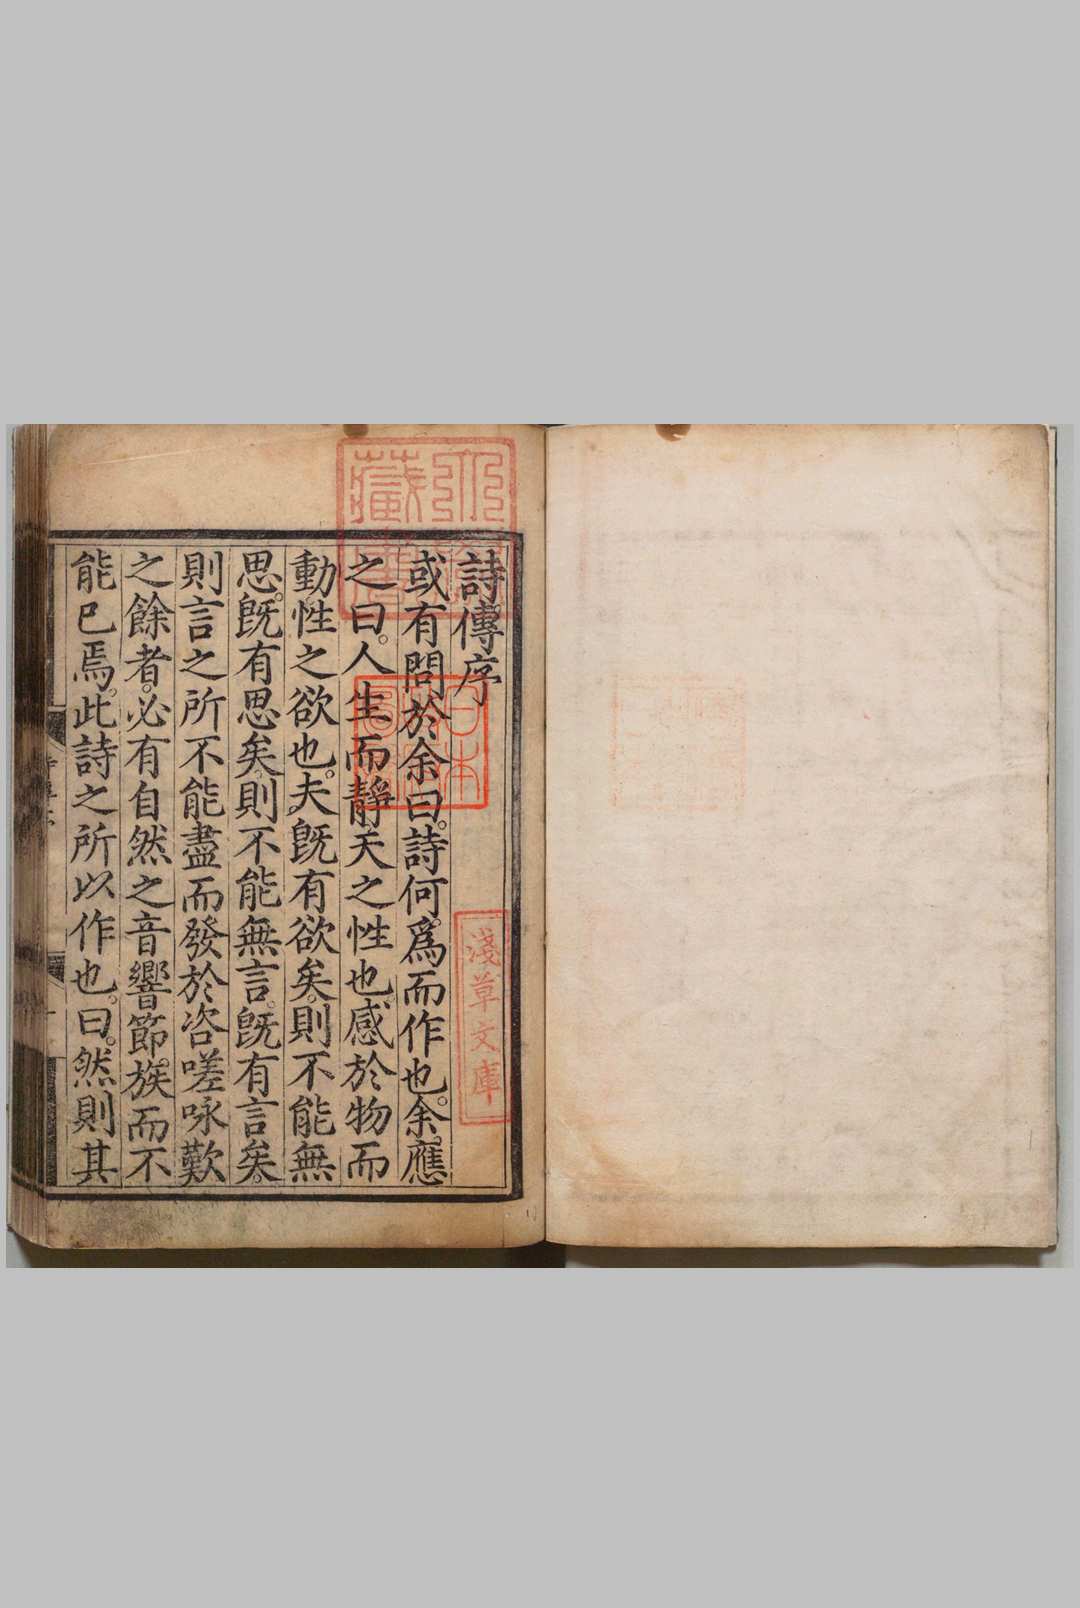 詩傳序
或有問於余曰。詩何爲而作也。余應
之曰。人生而靜天之性也。感於物而
動性之欲也。夫既有欲矣。則不能無
思。既有思矣。則不能無言。既有言矣。
則言之所不能盡而發於咨嗟咏歎
之餘者。必有自然之音響節族而不
能已焉。此詩之所以作也。曰。然則其
淺草文庫
日本